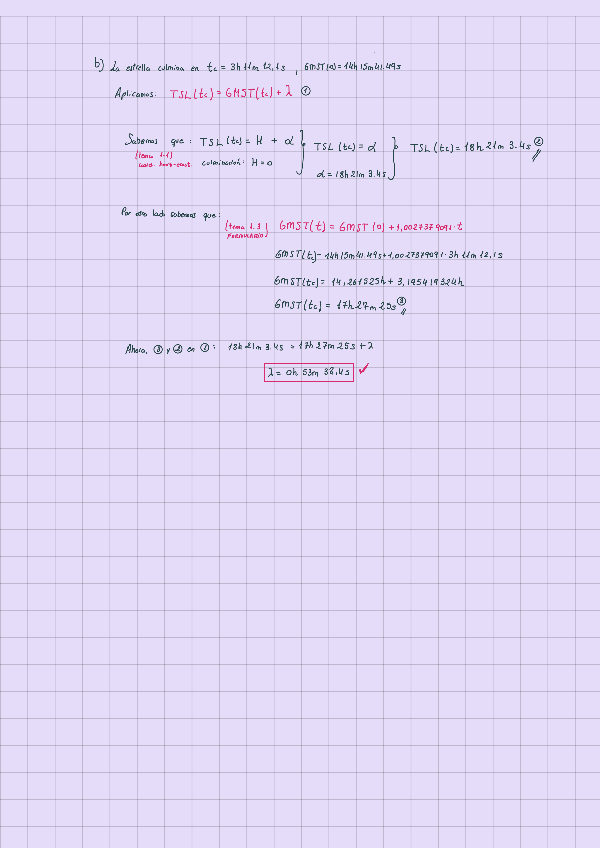 b) La estrella culmina en tc = 3h 11m 12,1s , GMST(0) = 14h 15m 41.49s
Aplicamos: TSL(tc) = GMST(tc) + λ ①
Sabemos que : TSL(tc) = H + α
(tema 1.1)
culminación: H = 0
TSL (tc) = α
α = 18h 21m 3.4s
TSL(tc) = 18h 21m 3.4s ②
Por otro lado sabemos que:
(tema 1.3
GMST(t) = GMST(0) + 1,0027379091 · t
GMST(tc) = 14h 15m 41.49s + 1,0027379091 · 3h 11m 12,1s
GMST(tc) = 14,261525h + 3,195419324h
GMST(tc) = 17h 27m 25s ③
Ahora, ③ y ② en ①: 18h 21m 3.4s = 17h 27m 25s + λ
λ = 0h 53m 38,4s ✓